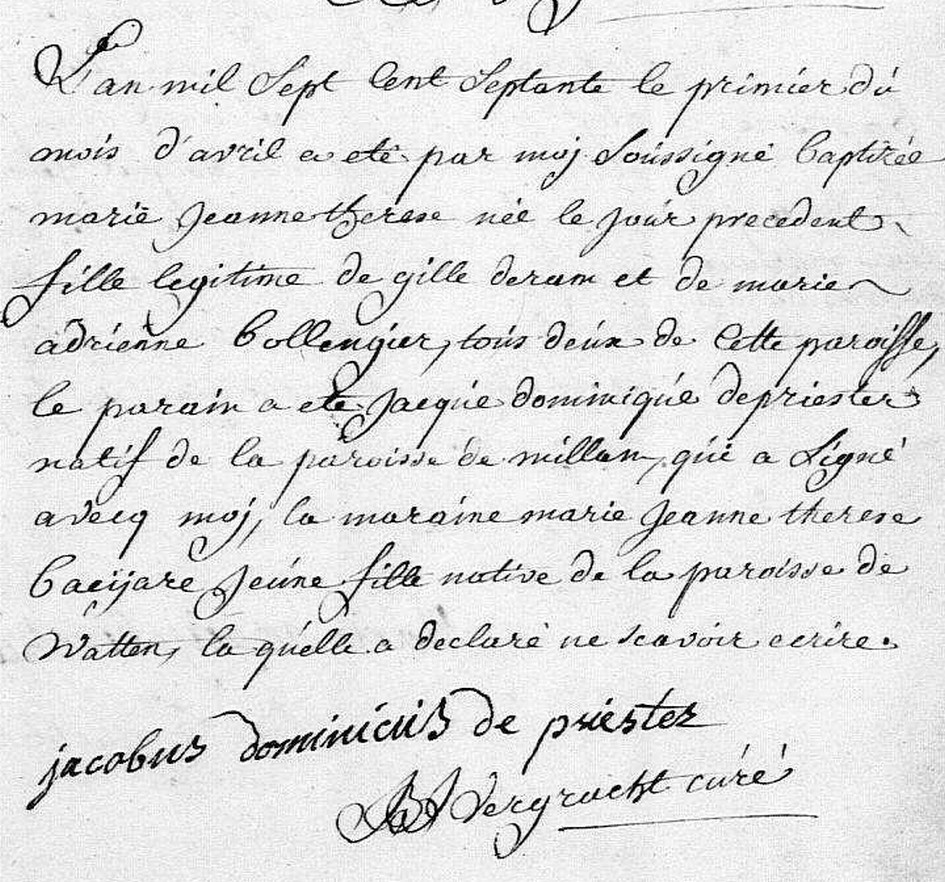 L'an mil Sept Cent Septante le primier dú
mois d'avril a eté par moj Soússigné baptizée
marie Jeanne therese née le joúr precedent
fille legitime de gille deram et de marie
adrienne bollengier, toús deúx de Cette paroisse,
le parain a eté Jacqúe dominiqúe depriester
natif de la paroisse de millam, qúi a Signé
avecq moj, la maraine marie Jeanne therese
bacijare Jeúne fille native de la paroisse de
Watten, la qúelle a declaré ne scavoir ecrire.
jacobus dominicus de priester
Vergracht cúré